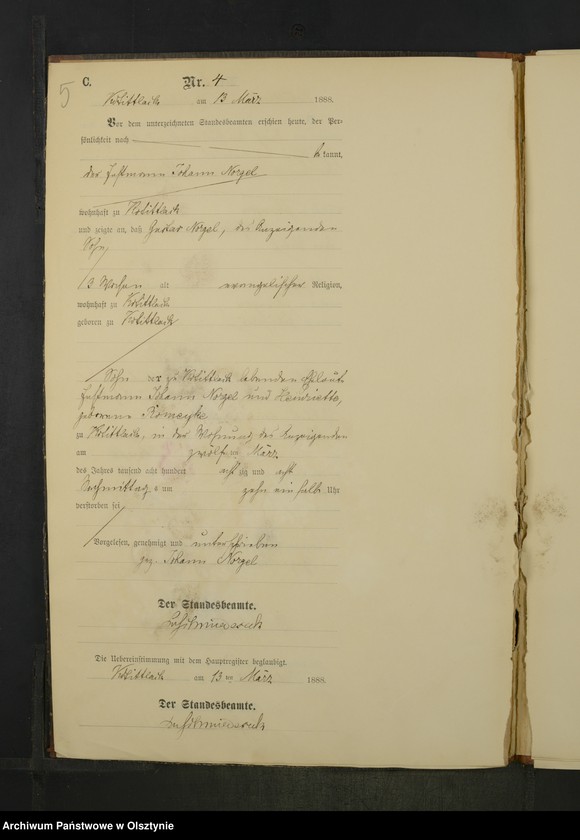 5
C.
Nr. 4
am 13 März 1888.
Vor dem unterzeichneten Standesbeamten erschien heute, der Per-
sönlichkeit nach
be kannt,
der Johann Norgel
wohnhaft zu
und zeigte an, daß Gustav Norgel, des Anzeigenden
Sohn,
3 Wochen alt evangelischer Religion,
wohnhaft zu
geboren zu
Sohn der zu lebenden
Johann Norgel und Henriette,
geborene Romeyke
zu in der Wohnung des Anzeigenden
am zwölften März
des Jahres tausend acht hundert acht zig und acht
Nachmittags um zehn ein halb Uhr
verstorben sei
Vorgelesen, genehmigt und unterschrieben
gez. Johann Norgel
Der Standesbeamte.
Die Uebereinstimmung mit dem Hauptregister beglaubigt.
am 13 ten März 1888.
Der Standesbeamte.
Archiwum Państwowe w Olsztynie